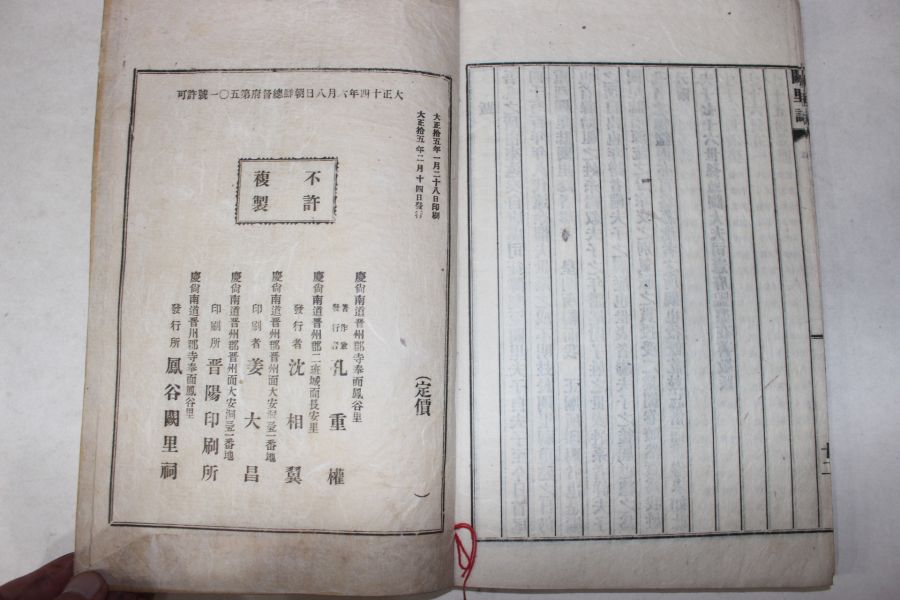 闕里誌
十二
大正十四年六月八日朝鮮總督府第五〇一號許可
大正拾五年一月二十八日印刷
大正拾五年二月十四日發行
不許
複製
(定價 )
慶尙南道晋州郡寺奉面鳳谷里
著作兼
發行者 孔重權
慶尙南道晋州郡二班城面長安里
發行者 沈相翼
慶尙南道晋州郡晋州面大安洞壹一番地
印刷者 姜大昌
慶尙南道晋州郡晋州面大安洞壹一番地
印刷所 晋陽印刷所
慶尙南道晋州郡寺奉面鳳谷里
發行所 鳳谷闕里祠